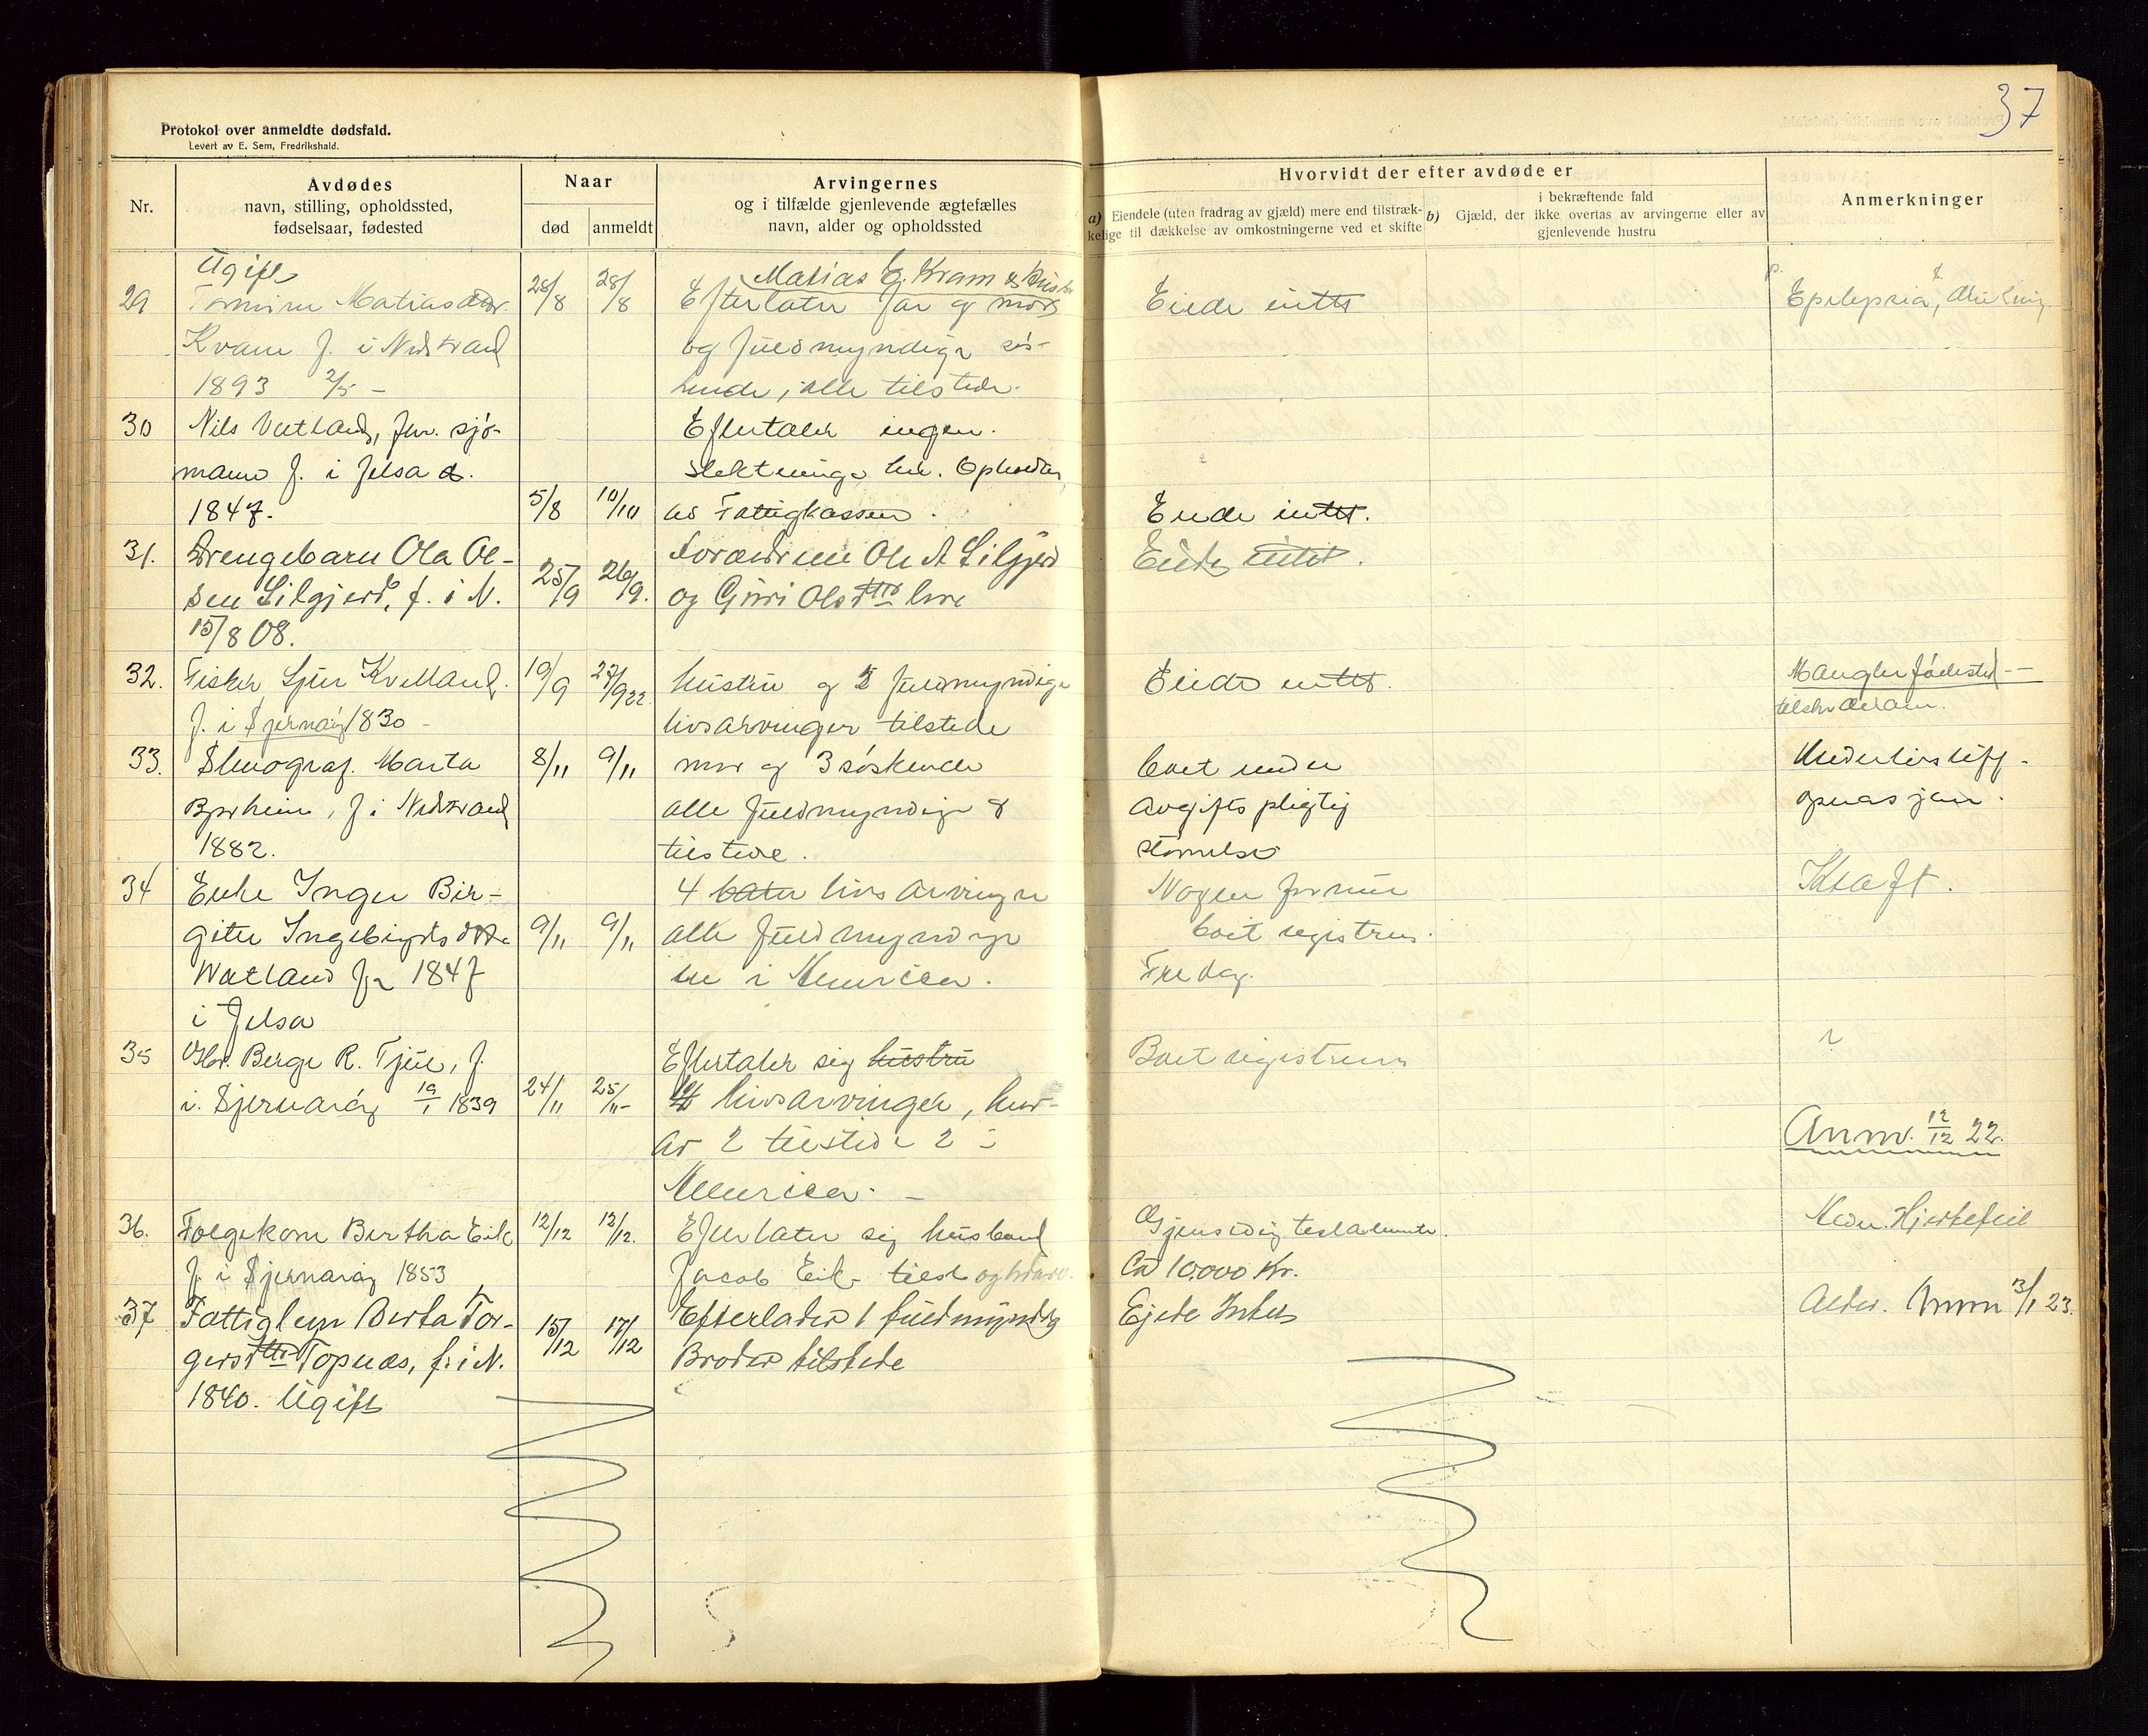 37
Protokol over anmeldte dødsfald.
Levert av E. Sem, Fredrikshald.
Nr.
Avdødes
navn, stilling, opholdssted,
fødselsaar, fødested
Naar
død
anmeldt
Arvingernes
og i tilfælde gjenlevende ægtefælles
navn, alder og opholdssted
Hvorvidt der efter avdøde er
a) Eiendele (uten fradrag av gjæld) mere end tilstræk-
kelige til dækkelse av omkostningerne ved et skifte
i bekræftende fald
b) Gjæld, der ikke overtas av arvingerne eller av
gjenlevende hustru
Anmerkninger
Ugift
Matias Kvam
29 Matiasdtr. 28/8 28/8 Efterlater far og mor Eiede intet Epilepsia,
Kvam f. i Nedstrand og fuldmyndige søs-
1893 2/5 – kende, alle tilstede.
30 Nils Vatland, fhv. sjø- Efterlater ingen
mand f. i Jelsa slektninge her.
1847. 5/8 10/10 av Fattigkassen. Eiede intet.
31. Drengebarn Ola Ol- Forældrene Ole A Lilgjerd Eiede intet.
sen Lilgjerd, f. i N. 25/9 26/9. og Guri Olsdtr
15/8 08.
32. Fisker Kvelland. 19/9 27/9 22. hustru og 2 fuldmyndige Eiede intet. Mangler fødested
f. i Sjernarøy 1830 – livsarvinger tilstede
33. Marta 8/11 9/11 mor og 3 søskende boet under Underlivs
f. i Nedstrand alle fuldmyndige & avgiftspligtig operasjon.
1882. tilstede. størrelse
34 Enke Inger Bir- 4 livsarvinger Nogen formue Kræft.
gitte Ingebrigtsdtr. 9/11 9/11 alle fuldmyndige boet registreres.
Watland f. 1847 i America. Fredag.
i Jelsa
35 Gbr. Berge R. Tjul, f. Efterlater sig hustru Boet registreres
i. Sjernarøy 19/1 1839 24/11 25/11 – 4 livsarvinger, hvor-
av 2 tilstede 2 i Anm. 12/12 22.
America. –
36. Folgekone Bertha Eik 12/12 12/12. Efterlater sig husband Gjensidig testamente. Hjertefeil
f. i Sjernarøy 1853 Jacob Eik Ca 10.000 Kr.
37 Fattiglem Berta Tor- 15/12 17/12 Efterlader 1 fuldmyndig Ejede Intet Alder. Anm 3/1 23.
gersdtr Topnes, f. i N. Broder tilstede
1840. Ugift